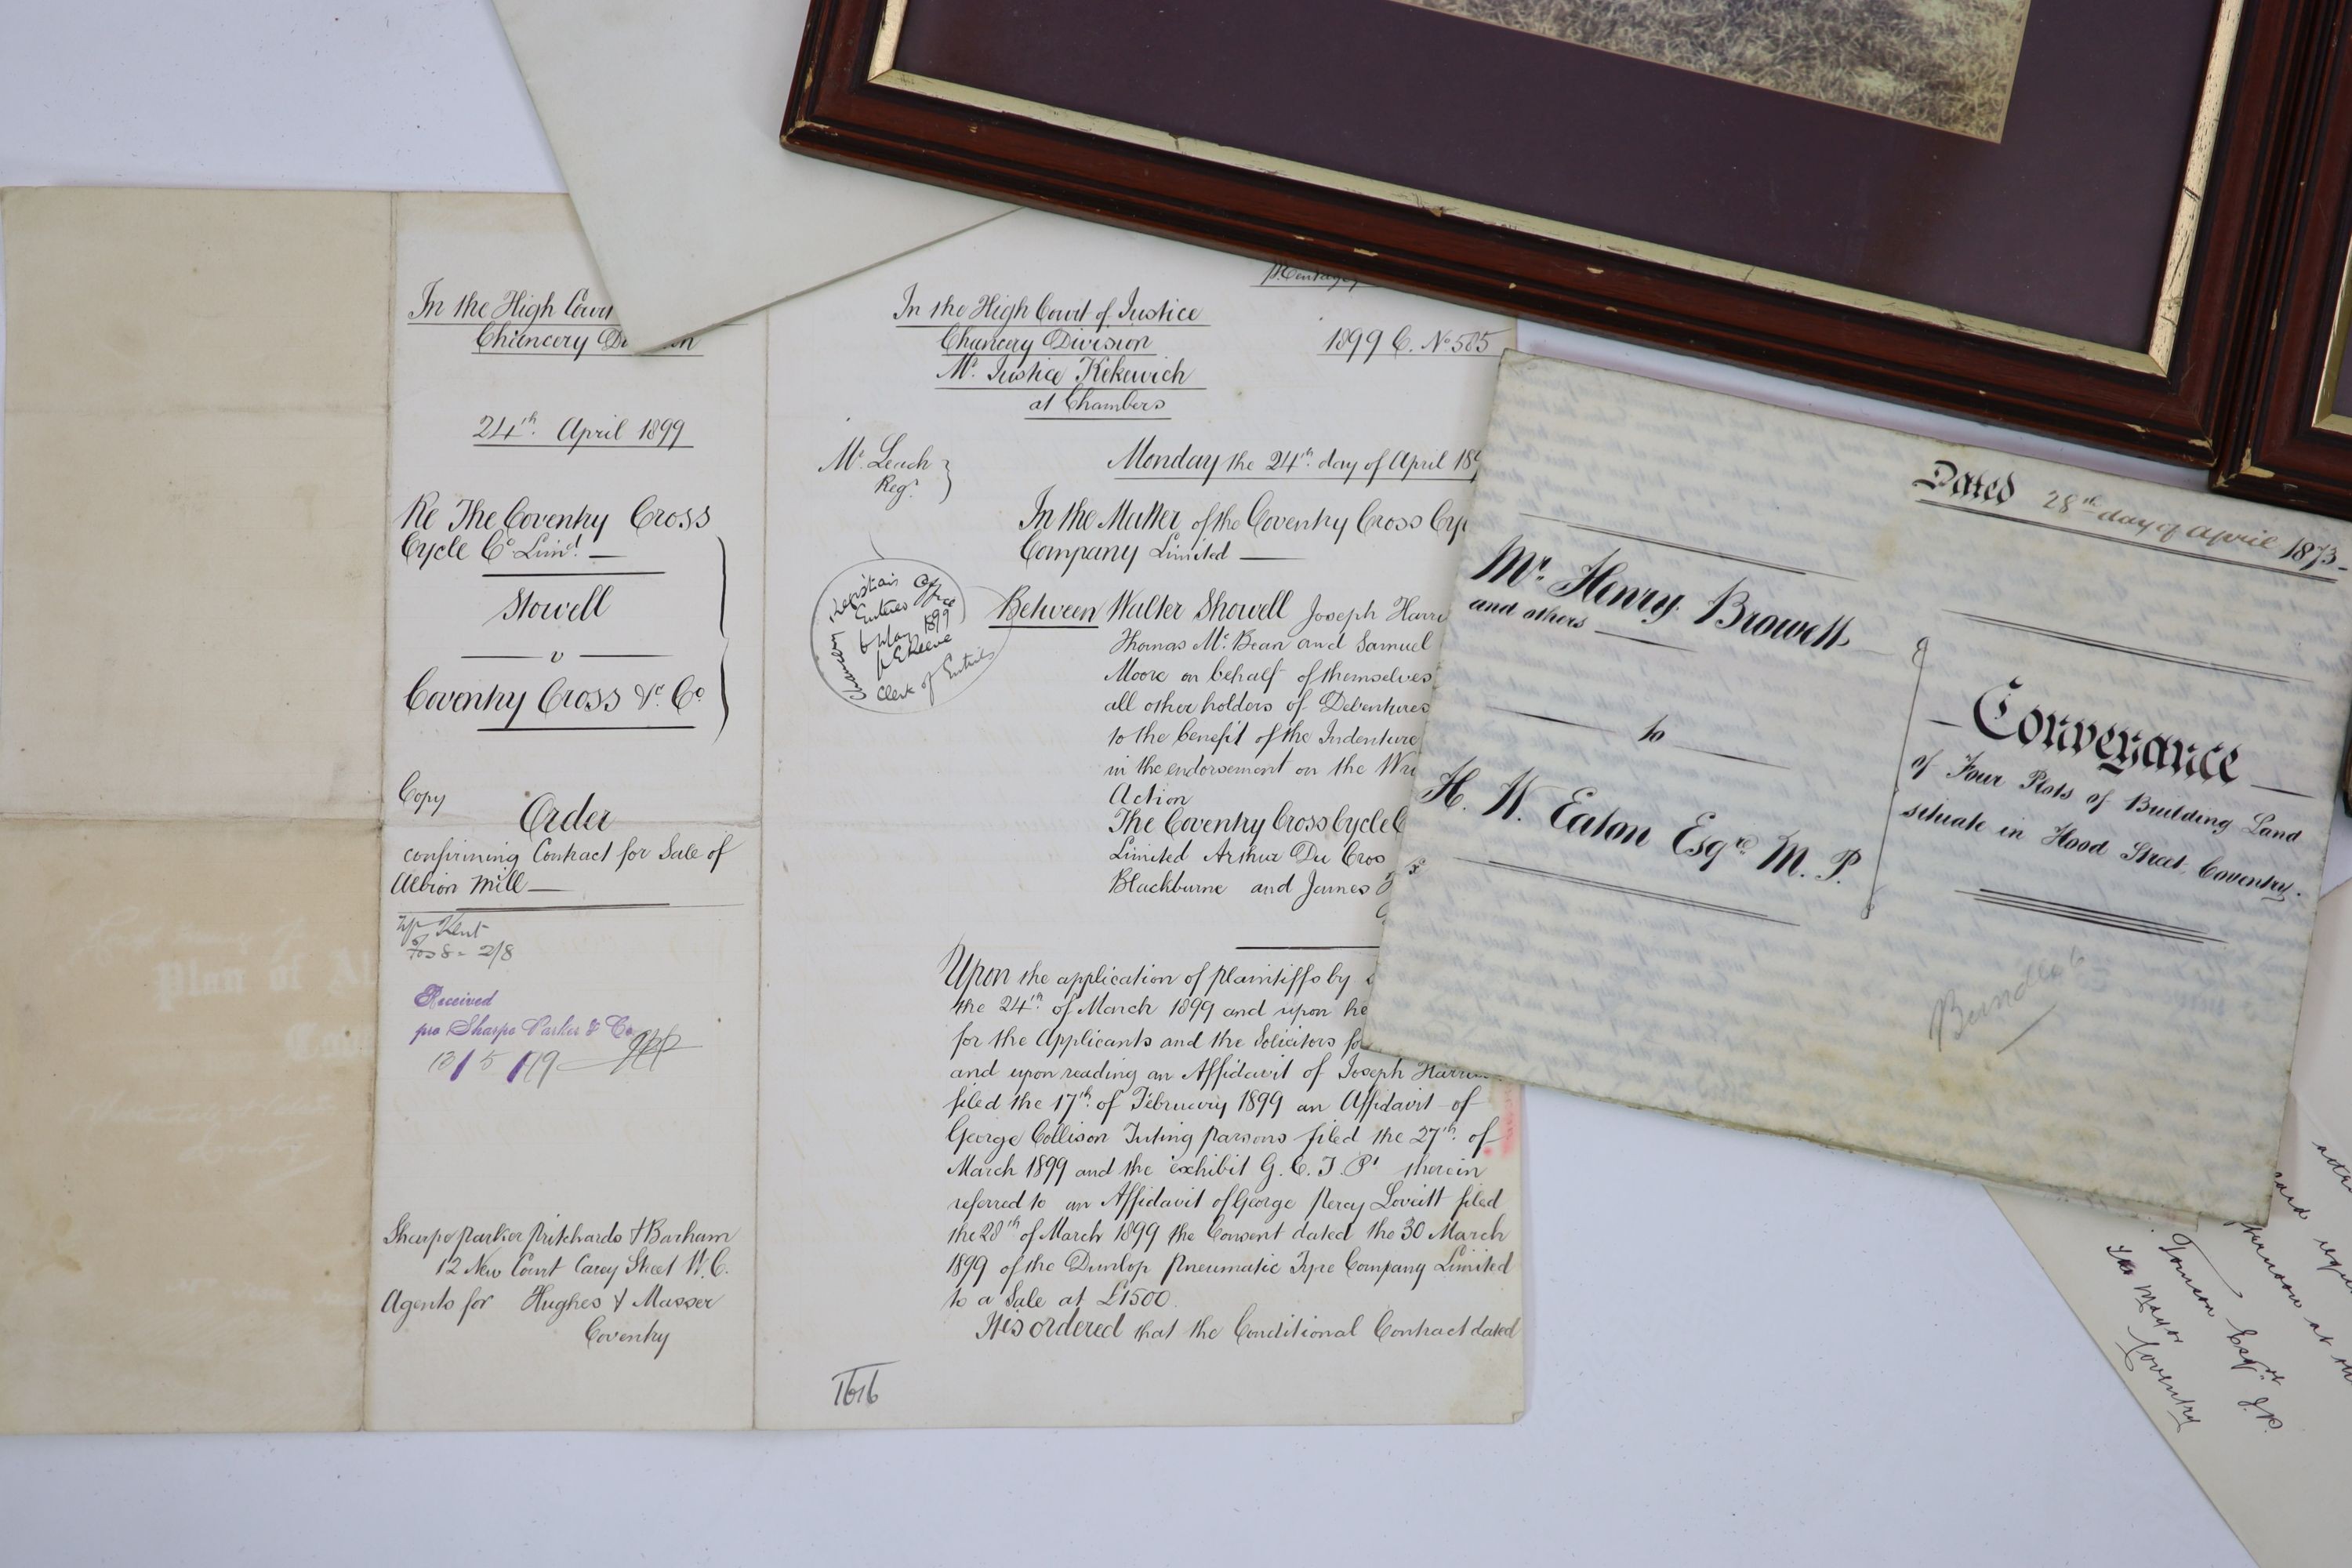 In the High Court
Chancery Di n
24th. April 1899
Re The Coventry Cross
Cycle Co Limd.
Showell
v
Coventry Cross &c. Co
Copy
Order
confirming Contract for Sale of
Albion Mill
Kent
Fos 8 = 2/8
Received
pro Sharpe Parker & Co.
Sharpe Parker Pritchards & Barham
12 New Court Carey Street W.C.
Agents for Hughes & Masser
Coventry
Plan of Al
In the High Court of Justice
Chancery Division
Mr. Justice Kekewich
at Chambers
1899 C. No 585
Mr. Leach
Regr.
Monday the 24th. day of April 189
In the Matter of the Coventry Cross Cyc
Company Limited
Registrars Office
Chancery
Entered
6 May 1899
Clerk of Entries
Between Walter Showell Joseph Harri
Thomas Mc. Bean and Samuel
Moore on behalf of themselves
all other holders of Debentures
to the benefit of the Indenture
in the endorsement on the Wri
Action
The Coventry Cross Cycle C
Limited Arthur Du Cros
Blackburne and James
Upon the application of plaintiffs by
the 24th. of March 1899 and upon he
for the Applicants and the Solicitors fo
and upon reading an Affidavit of Joseph Harri
filed the 17th. of February 1899 an Affidavit of
George Collison Tuting Parsons filed the 27th. of
March 1899 and the exhibit G. C. T. P1 therein
referred to an Affidavit of George Percy Loveitt filed
the 28th of March 1899 the Consent dated the 30 March
1899 of the Dunlop Pneumatic Tyre Company Limited
to a Sale at £1500.
It is ordered that the Conditional Contract dated
1616
Dated 28th day of April 1873.
Mr. Henry Browett
and others
to
H. W. Eaton Esqre M. P.
Conveyance
of Four Plots of Building Land
situate in Hood Street, Coventry.
Bundle 6
Tomson Esqre. J.P.
The Mayor
Coventry